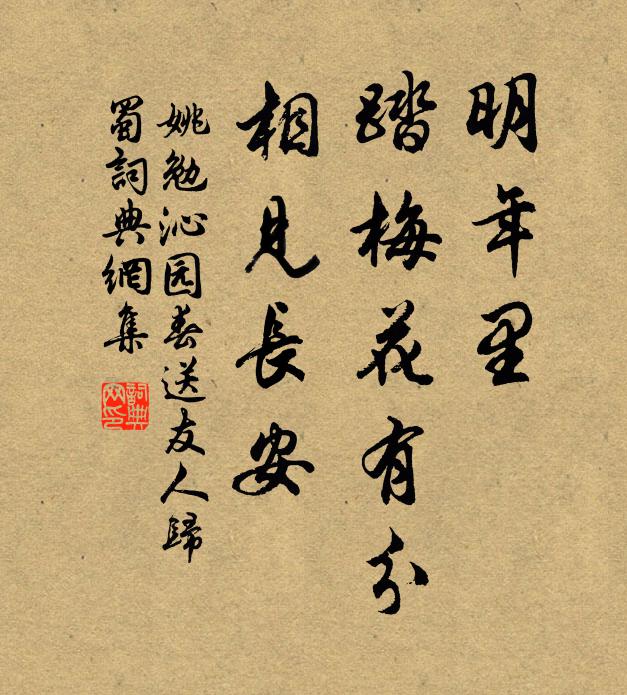 明年里
踏梅花有分
相見長安
姚勉沁园春送友人歸
蜀詞典網集
詞典网印